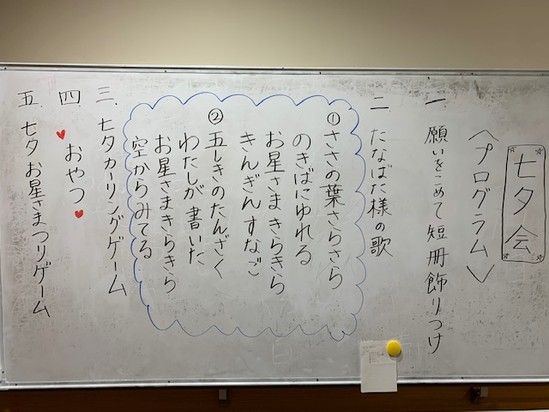 七夕会
〈プログラム〉
一 願いをこめて短冊飾りつけ
二 たなばた様の歌
① ささの葉さらさら
のきばにゆれる
お星さまきらきら
きんぎんすなご
② 五しきのたんざく
わたしが書いた
お星さまきらきら
空からみてる
三、七夕カーリングゲーム
四 ♥おやつ♥
五、七夕お星さまつりゲーム